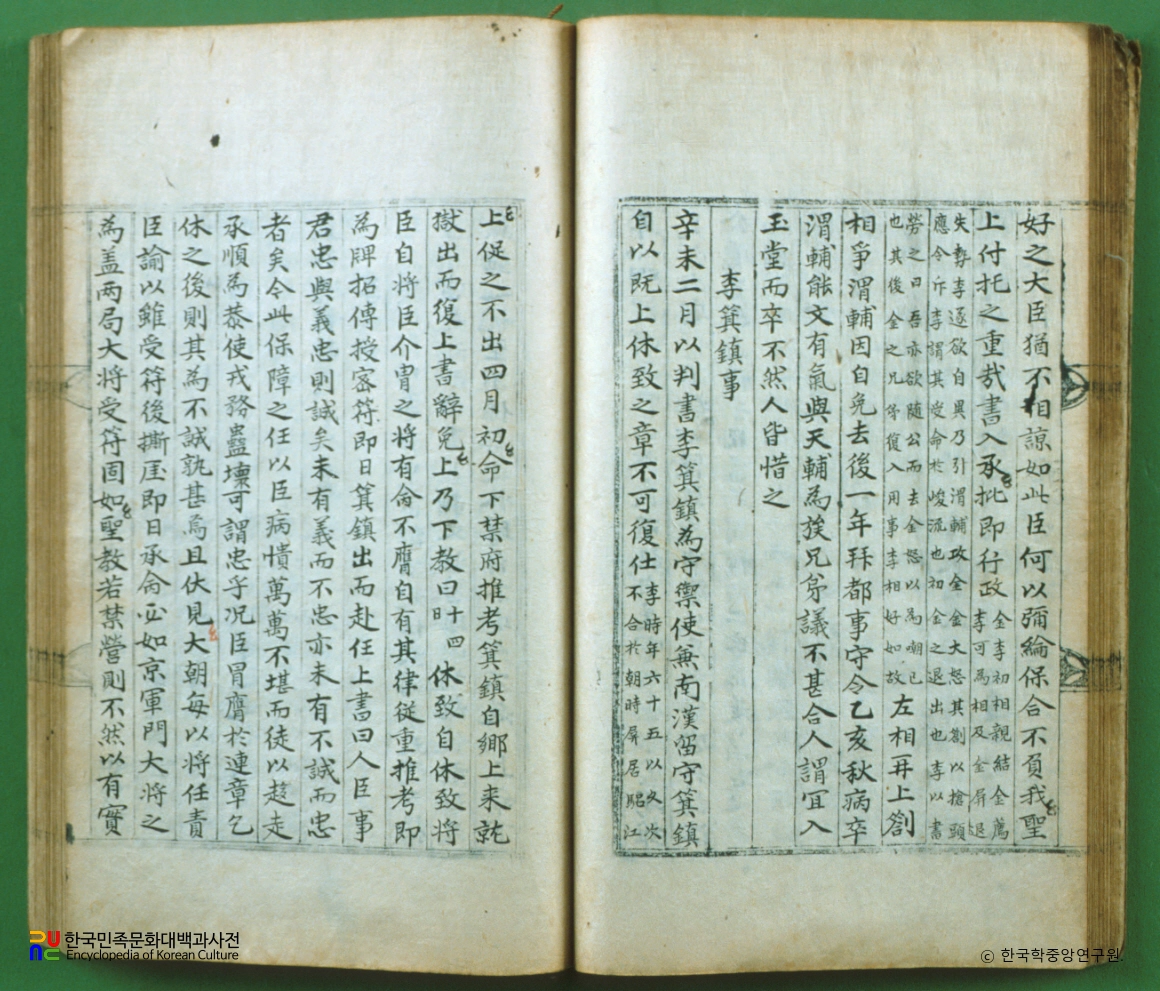 好之大臣猶不相諒如此臣何以彌綸保合不負我聖
上付托之重哉書入承批即行政金李初相親結金薦李可為相及金屏退
失勢李遂欲自異乃引渭輔攻金金大怒其劄以搶頭
應令斥李謂其受命於峻流也初金之退出也李以書
勞之曰吾亦欲隨公而去金怒以為嘲已
也其後金之兄弟復入用事李相好如故左相再上劄
相爭渭輔因自免去後一年拜都事守令乙亥秋病卒
渭輔能文有氣與天輔為族兄弟議不甚合人謂宜入
玉堂而卒不然人皆惜之
李箕鎮事
辛未二月以判書李箕鎮為守禦使兼南漢留守箕鎮
自以既上休致之章不可復仕李時年六十五以文次不合於朝時屏居驪江
上促之不出四月初命下禁府推考箕鎮自鄉上来就
獄出而復上書辭免上乃下教曰 休致自休致將
臣自將臣介冑之將有命不膺自有其律従重推考即
為牌招傳授密符即日箕鎮出而赴任上書曰人臣事
君忠與義忠則誠矣未有義而不忠亦未有不誠而忠
者矣今此保障之任以臣病憒萬萬不堪而徒以趍走
承順為恭使戎務蠱壞可謂忠乎况臣冒膺於連章乞
休之後則其為不誠孰甚焉且伏見大朝每以將任責
臣諭以雖受符後撕厓即日承命必如京軍門大將之
為盖兩局大將受符固如聖教若禁營則不然以有實
한국민족문화대백과사전
Encyclopedia of Korean Culture
ⓒ 한국학중앙연구원.